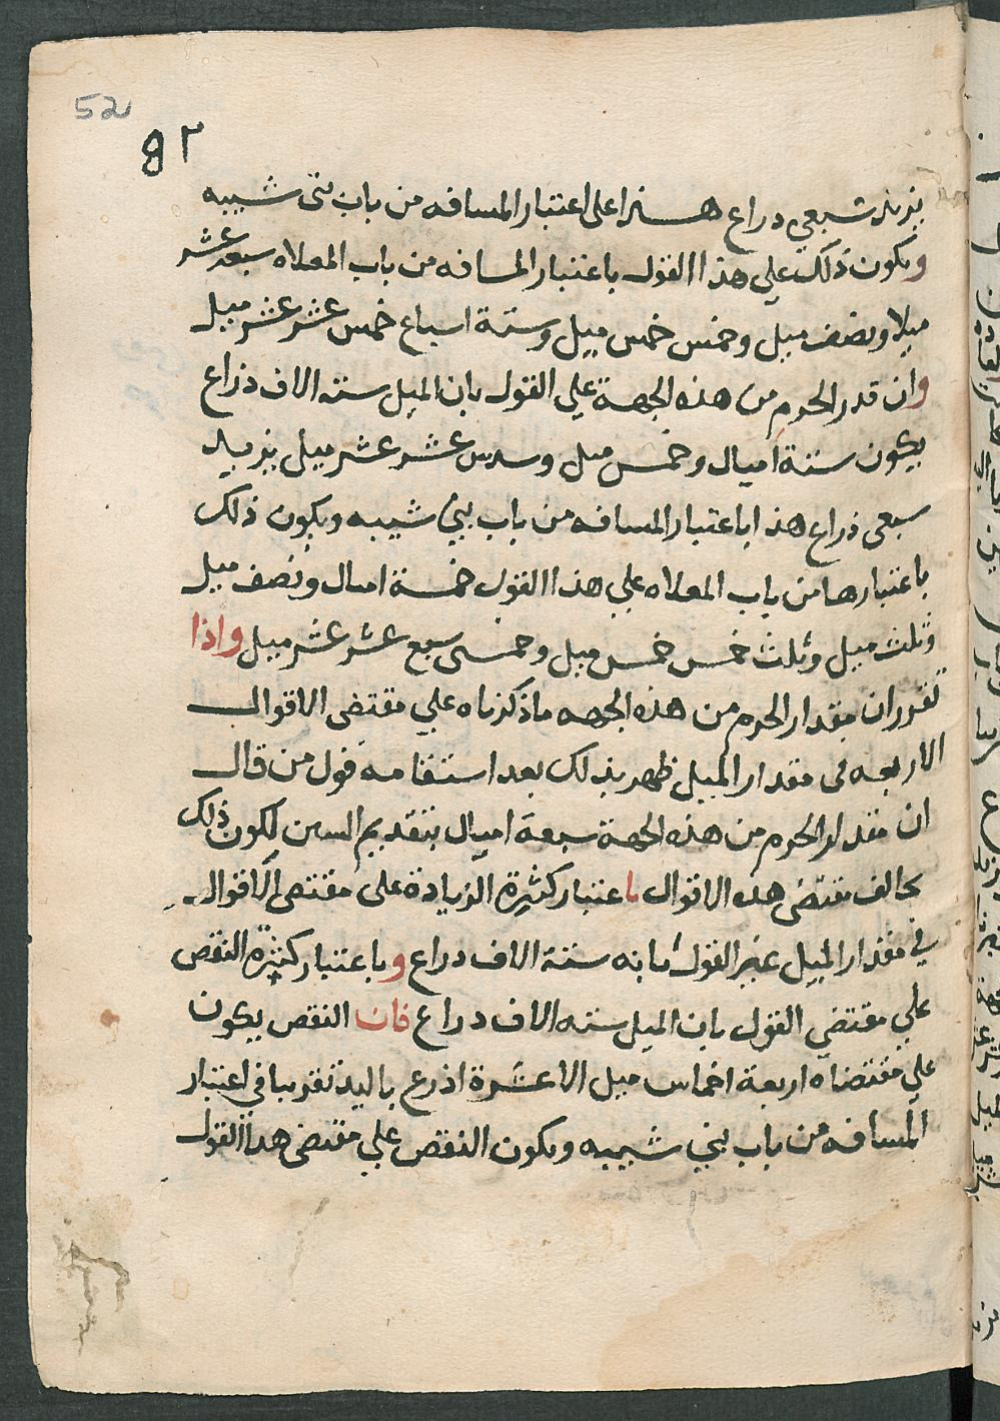 52
٥٢
يزيد سبعي دراع هذا على اعتبار المسافه من باب بنى شيبه
ويكون ذلك علي هذا القول باعتبار المسافه من باب المعلاه سبعه عشر
ميلا ونصف ميل وخمس خمس ميل وستة اسباع خمس عشر عشر ميل
وان قدر الحرم من هذه الجهة علي القول بان الميل سته الاف ذراع
يكون ستة اميال وخمس ميل وسدس عشر عشر ميل يزيد
سبعي ذراع هذا باعتبار المسافه من باب بني شيبه ويكون ذلك
باعتبارها من باب المعلاه علي هذا القول خمسة اميال ونصف ميل
وثلث ميل وثلث خمس خمس ميل وخمسى سبع عشر عشر ميل واذا
تقرر ان مقدار الحرم من هذه الجهه ماذكرناه علي مقتضى الاقوال
الاربعه فى مقدار الميل ظهر بذلك بعد استقامه قول من قال
ان مقدار الحرم من هذه الجهة سبعة اميال بتقديم السين لكون ذلك
يخالف مقتضى هذه الاقوال باعتبار كثيرة الزيادة على مقتضى الاقوال
في مقدار الميل غير القول بانه ستة الاف دراع وباعتبار كثرة النقص
علي مقتضي القول بان الميل سته الاف دراع فان النقص يكون
علي مقتضاه اربعة اخماس ميل الا عشرة اذرع باليد تقريبا في اعتبار
المسافه من باب بني شيبه ويكون النقص علي مقتضى هذا القول